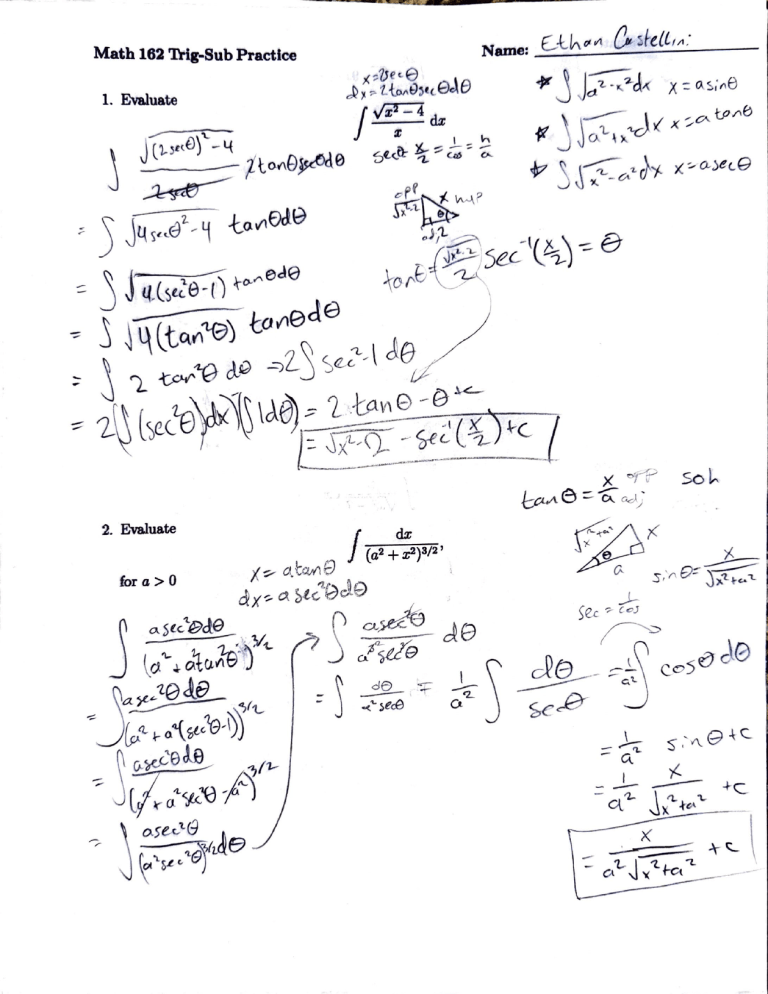 Math 162 Trig-Sub Practice
Name: Ethan Castellini
1. Evaluate
x=2secΘ
dx=2tanΘsecΘdΘ
∫ √(x²−4)/x dx
secΘ x/2 = 1/cos = h/a
* ∫√(a²-x²)dx x=asinΘ
* ∫√(a²+x²)dx x=atanΘ
* ∫√(x²-a²)dx x=asecΘ
∫ √((2secΘ)²-4)/2secΘ 2tanΘsecΘdΘ
opp √(x²-2) x hyp
Θ
adj 2
= ∫ √(4secΘ²-4) tanΘdΘ
tanΘ = √(x²-2)/2 sec⁻¹(x/2) = Θ
= ∫ √(4(sec²Θ-1)) tanΘdΘ
= ∫ √(4(tan²Θ)) tanΘdΘ
= ∫ 2 tan²Θ dΘ ⇒ 2∫ sec²-1 dΘ
= 2(∫(sec²Θ)dx)-(∫1dΘ) = 2 tanΘ - Θ +c
= √(x²-2) - sec⁻¹(x/2) +c
2. Evaluate
for a > 0
∫ dx/(a² + x²)^(3/2),
x = atanΘ
dx = asec²ΘdΘ
tanΘ = x/a opp adj soh
√(x²+a²) x
Θ
a
sinΘ = x/√(x²+a²)
sec = 1/cos
∫ asec²ΘdΘ/(a²+a²tan²Θ)^(3/2)
= ∫ asec²ΘdΘ/(a²+a²(sec²Θ-1))^(3/2)
= ∫ asec²ΘdΘ/(a²+a²sec²Θ-a²)^(3/2)
= ∫ asec²Θ/(a²sec²Θ)^(3/2) dΘ
→ ∫ asec²Θ/a³sec³Θ dΘ
= ∫ dΘ/a²secΘ = 1/a² ∫ dΘ/secΘ = 1/a² ∫ cosΘdΘ
= 1/a² sinΘ+c
= 1/a² x/√(x²+a²) +c
= x/a²√(x²+a²) +c